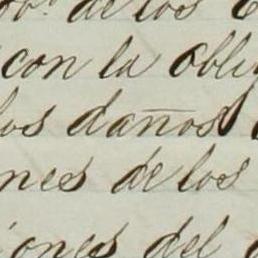 de los
con la obli
los daños
nes de los
iones del